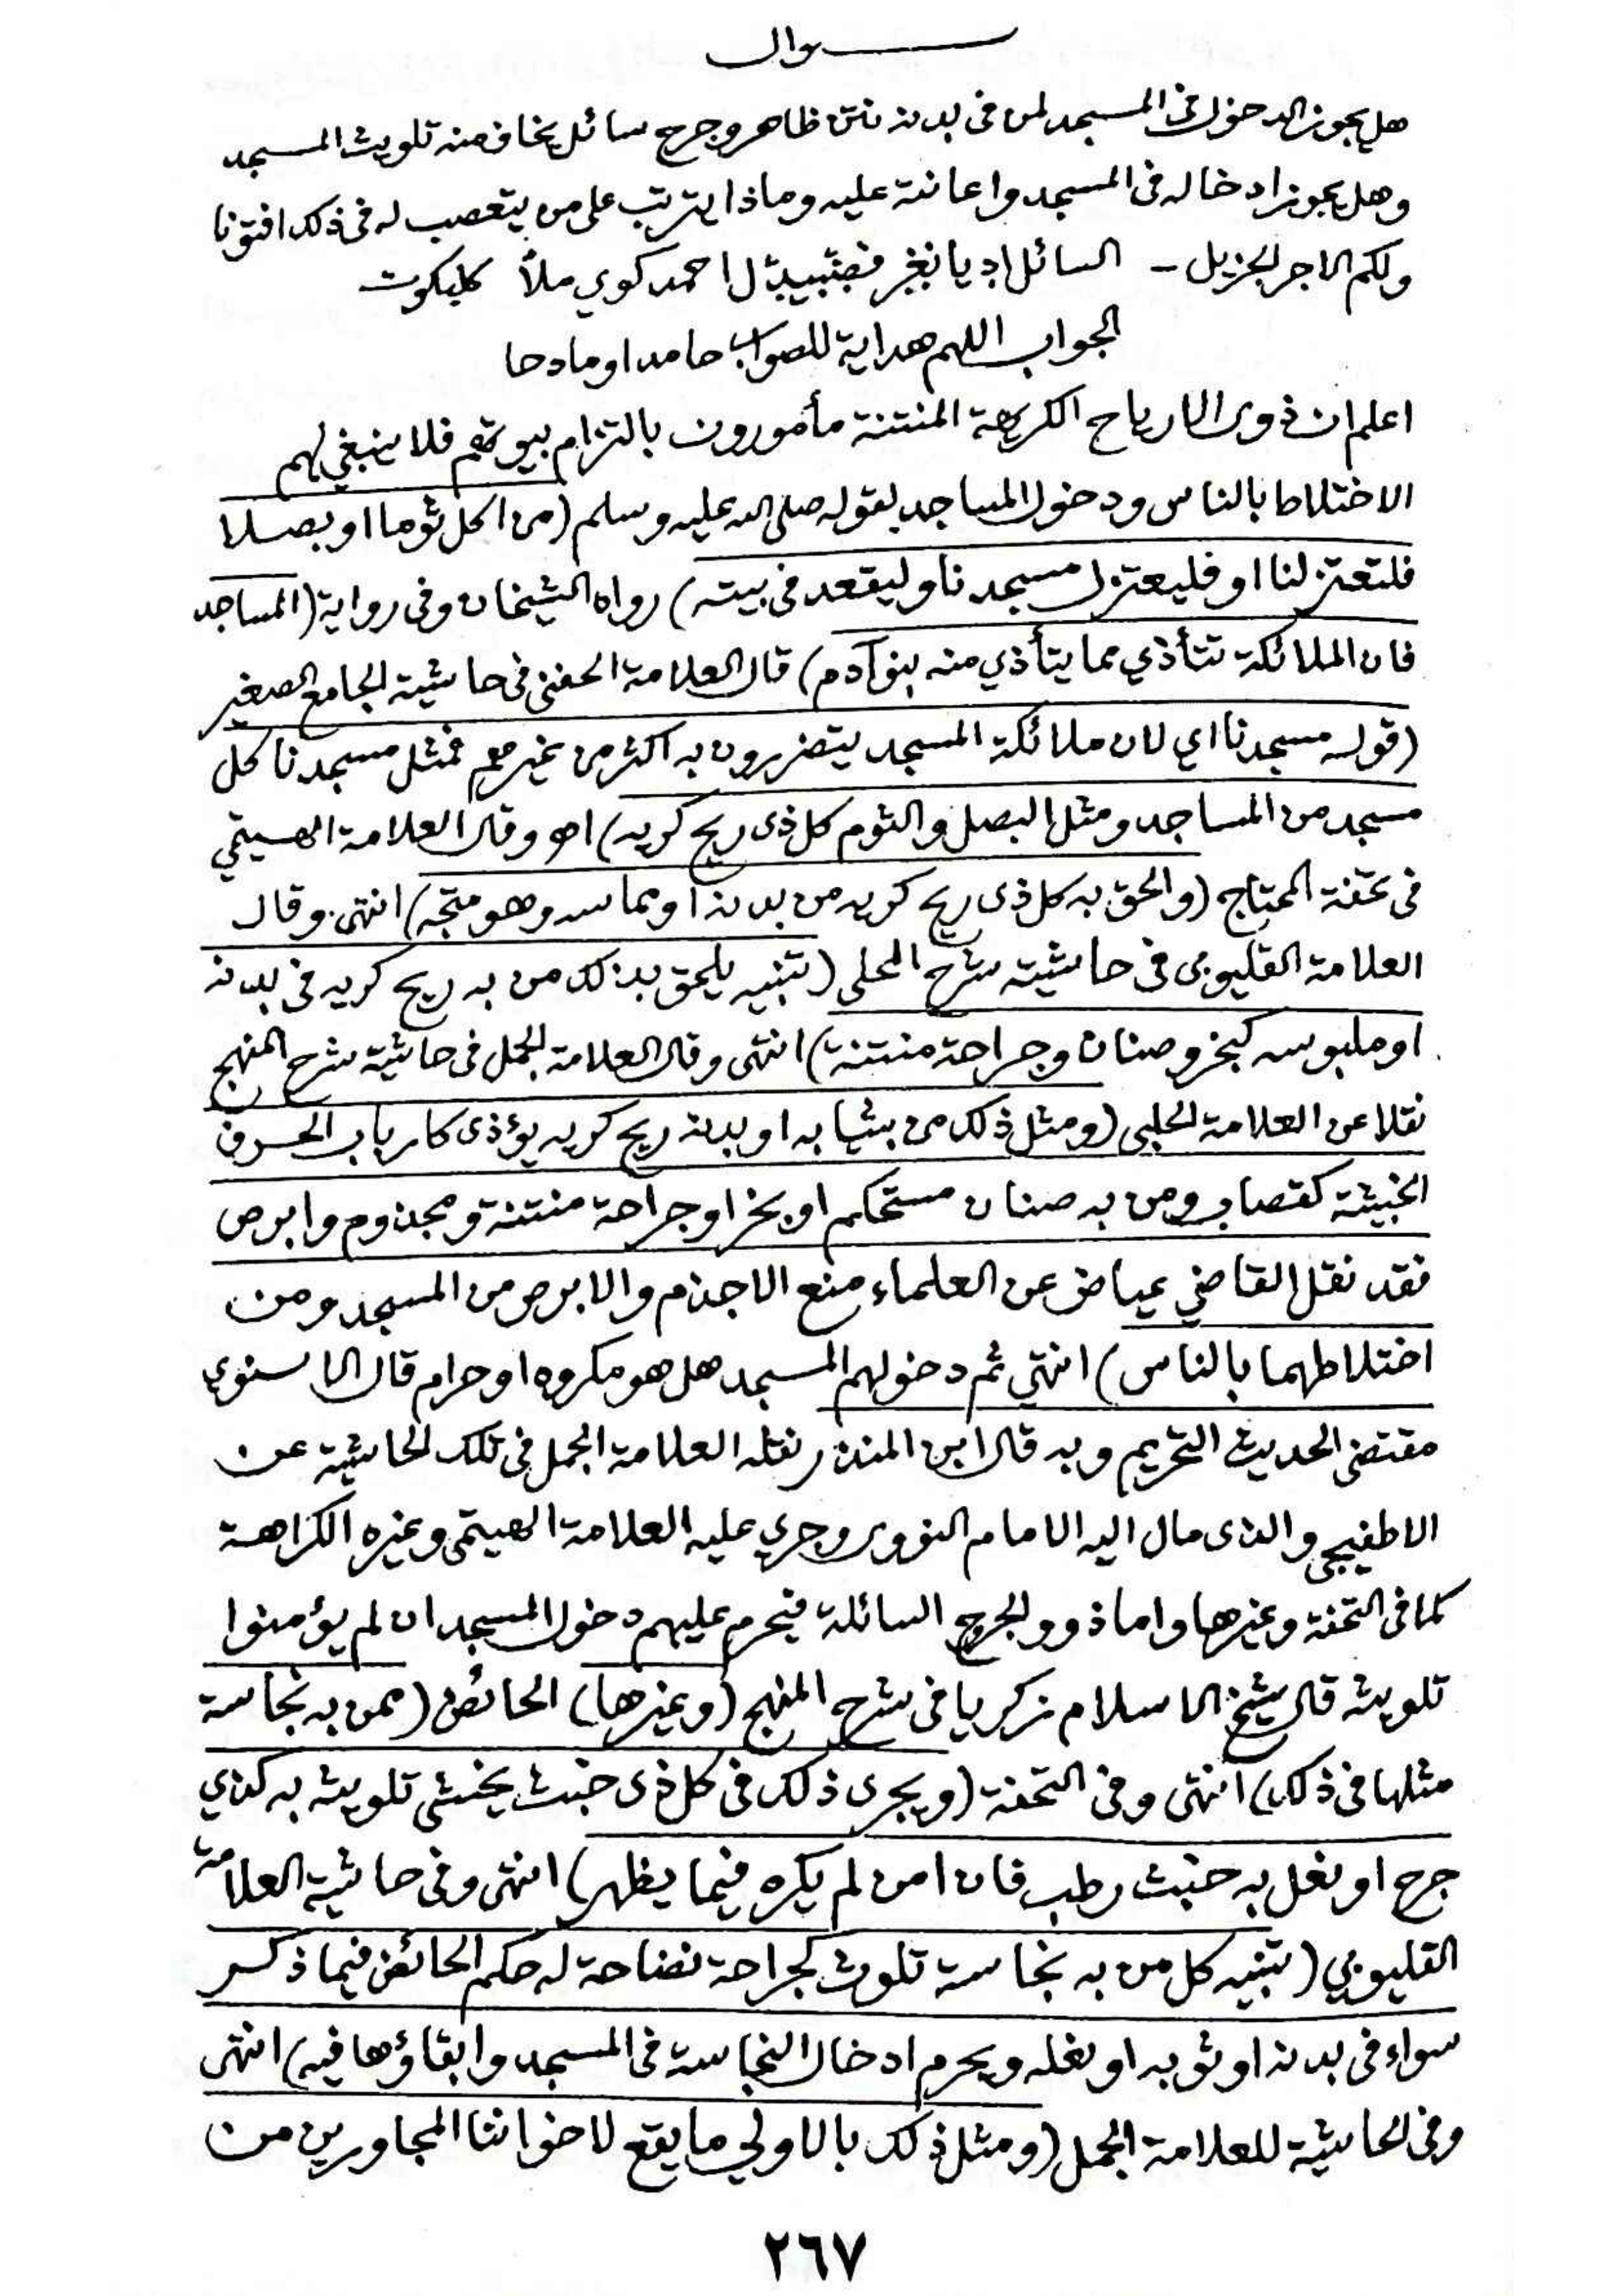 سوال
هل يجوز الدخول فى المسجد لمن فى بدنه نتن ظاهر وجرح سائل يخاف منه تلويث المسجد
وهل يجوز ادخاله فى المسجد واعانته عليه وماذا يترتب على من يتعصب له فى ذلك افتونا
ولكم الاجر الجزيل - السائل احمد كوي ملا كليكوت
الجواب اللهم هداية للصواب حامدا ومادحا
اعلم ان ذوى الارياح الكريهة المنتنة مأمورون بالتزام بيوتهم فلا ينبغي لهم
الاختلاط بالناس ودخول المساجد لقوله صلى الله عليه وسلم (من اكل ثوما او بصلا
فلتعتزلنا او فليعتزل مسجدنا وليقعد فى بيته) رواه الشيخان وفى رواية (المساجد
فان الملائكة تتأذي مما يتأذي منه بنو آدم) قال العلامة الحفنى فى حاشية الجامع الصغير
(قوله مسجدنا اي لان ملائكة المسجد يتضررون به اكثر من غيرهم فمثل مسجدنا كل
مسجد من المساجد ومثل البصل والثوم كل ذى ريح كريه) اهـ وقال العلامة الهيتمي
فى تحفة المحتاج (والحق به كل ذى ريح كريه من بدنه او مماسه وهو متجه) انتهى. وقال
العلامة القليوبى فى حاشيته شرح المحلى (تنبيه يلحق بذلك من به ريح كريه فى بدنه
او ملبوسه كبخر وصنان وجراحة منتنة) انتهى وقال العلامة الجمل فى حاشية شرح المنهج
نقلا عن العلامة الحلبى (ومثل ذلك من بثيابه او بدنه ريح كريه يؤذى كارباب الحرف
الخبيثة كقصاب ومن به صنان مستحكم او بخر او جراحة منتنة ومجذوم وابرص
فقد نقل القاضي عياض عن العلماء منع الاجذم والابرص من المسجد ومن
اختلاطهما بالناس) انتهي ثم دخولهم المسجد هل هو مكروه او حرام قال الاسنوي
مقتضى الحديث التحريم وبه قال ابن المنذر نقله العلامة الجمل فى تلك الحاشية عن
الاطفيحي والذى مال اليه الامام النووى وجري عليه العلامة الهيتمى وغيره الكراهة
كما فى التحفة وغيرها واما ذوو الجروح السائلة فيحرم عليهم دخول المسجد ان لم يؤمنوا
تلويثه قال شيخ الاسلام زكريا فى شرح المنهج (وغيرها) الحائض (ممن به نجاسة
مثلها فى ذلك) انتهى وفى التحفة (ويجرى ذلك فى كل ذى خبث يخشى تلويثه به كذي
جرح او نعل به خبث رطب فان امن لم يكره فيما يظهر) انتهى وفى حاشية العلامة
القليوبي (تنبيه كل من به نجاسة تلوث كجراحة نضاحة له حكم الحائض فيما ذكر
سواء فى بدنه او ثوبه او نعله ويحرم ادخال النجاسة فى المسجد وابقاؤها فيه) انتهى
وفى الحاشية للعلامة الجمل (ومثل ذلك بالاولي ما يقع لاخواننا المجاورين من
٢٦٧